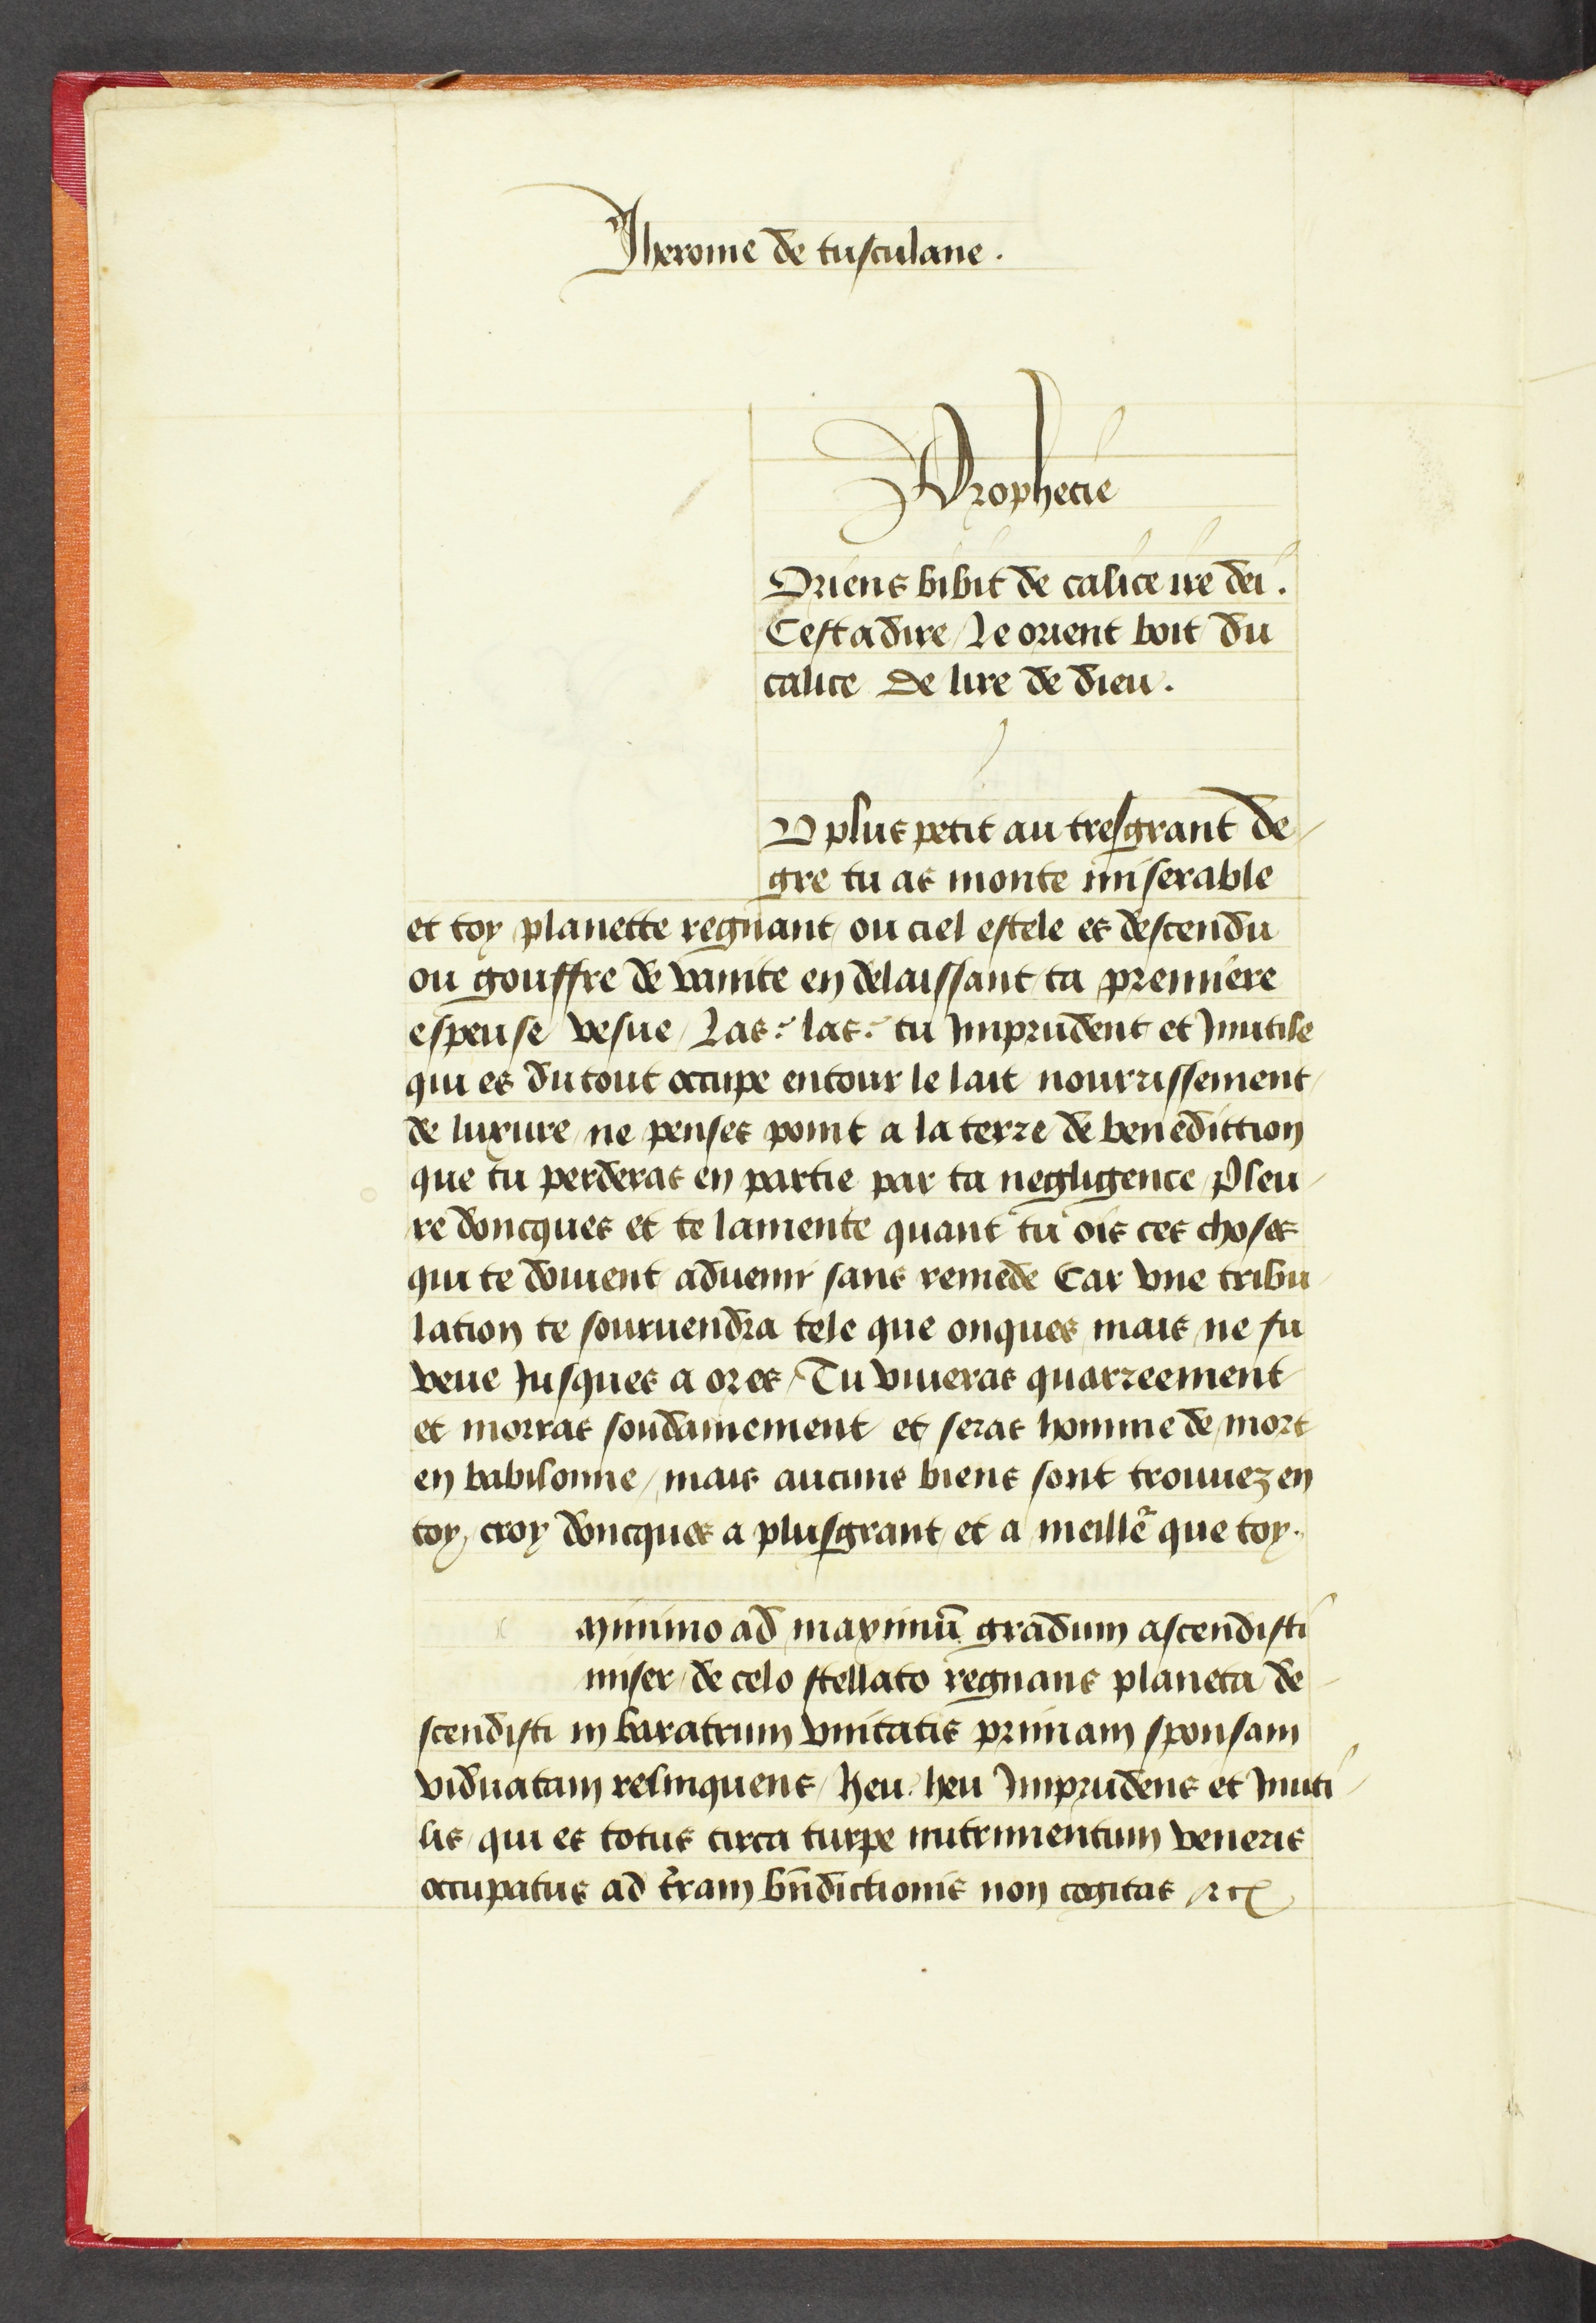 Jherome de tusculane.
Prophecie
Oriens bibit de calice ire dei.
Cest a dire / Le orient boit du
calice de lire de dieu.
U plus petit au tresgrant de-
gre tu as monte miserable
et toy planette regnant ou ciel estele es descendu
ou gouffre de vanite en delaissant ta premiere
espeuse vesue / Las: las: tu Imprudent et Inutile
qui es du tout occupe entour le lait nourrissement
de luxure / ne penses point a la terre de benediction
que tu perderas en partie par ta negligence / Pleu-
re doncques et te lamente quant tu ois ces choses
qui te doiuent aduenir sans remede Car vne tribu-
lation te souruendra tele que onques mais ne fu
veue Jusques a ores / Tu viueras quarreement
et morras soudainement et seras homme de mort
en babilonne / mais aucuns biens sont trouuez en
toy, croy doncques a plusgrant et a meille᷑ que toy.
minimo ad maximū gradum ascendisti
miser / de celo stellato regnans planeta de-
scendisti in baratrum vnitatis primam sponsam
viduatam relinquens / heu. heu Imprudens et Inuti-
lis / qui es totus circa turpe nutrimentum veneris
occupatus ad t̄ram bn̄dictionis non cogitas ⁊c̃